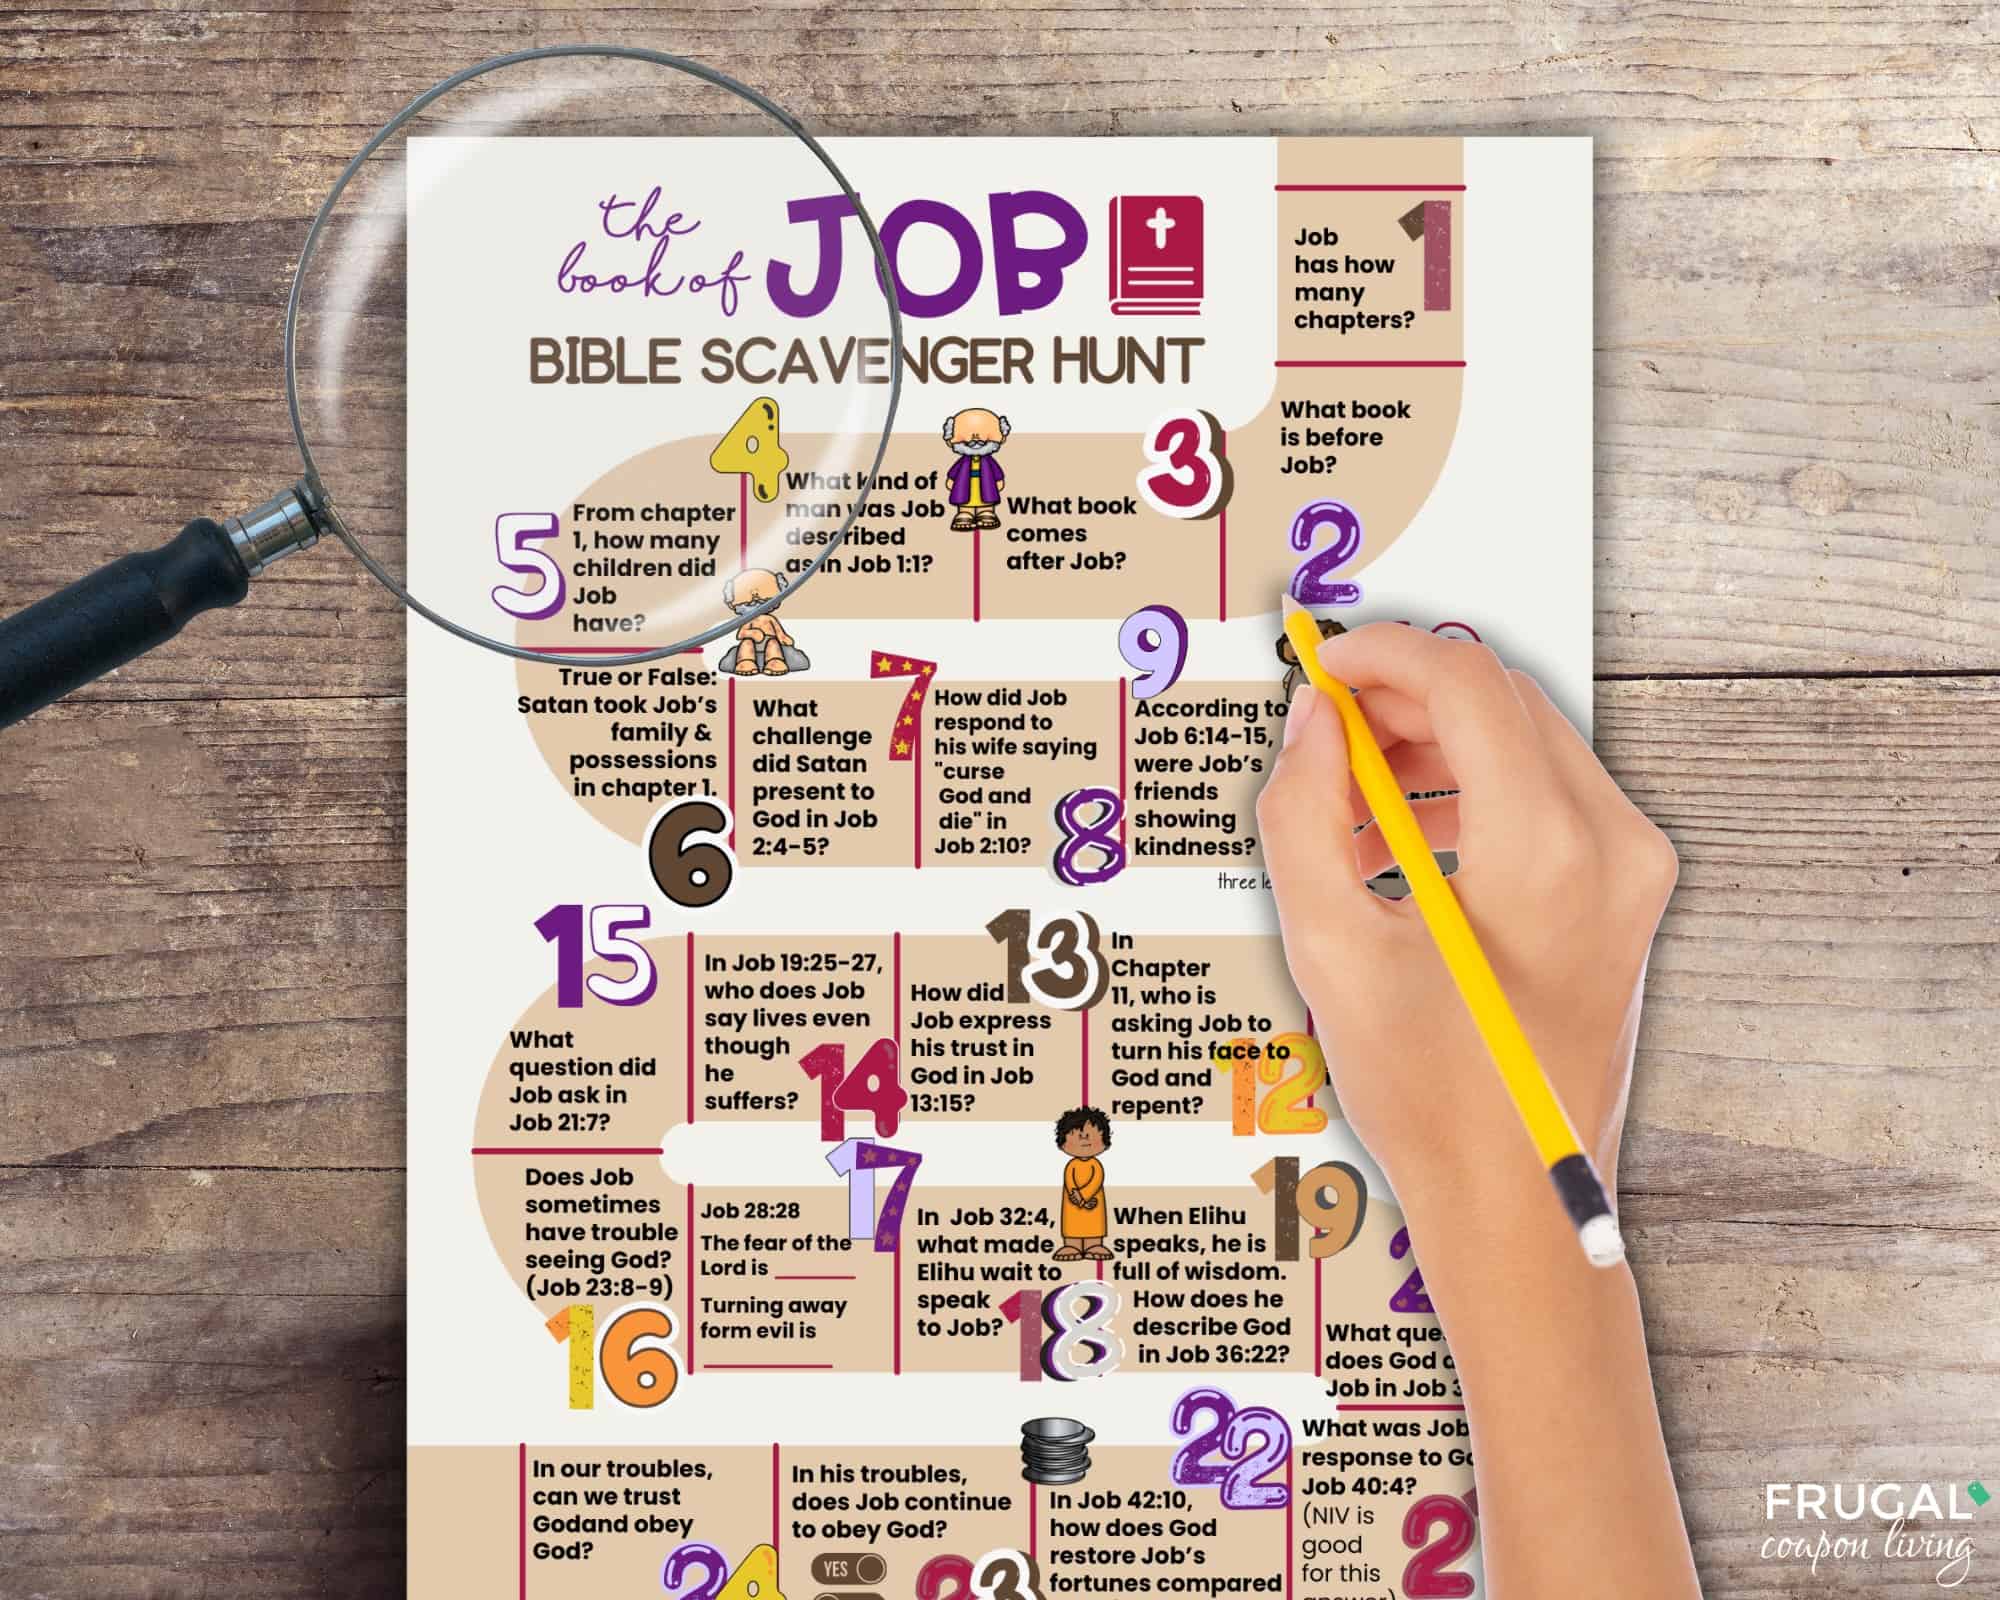 the
book of JOB
BIBLE SCAVENGER HUNT
1
Job
has how
many
chapters?
What book
is before
Job?
2
3
What book
comes
after Job?
4
What kind of
man was Job
described
as in Job 1:1?
5
From chapter
1, how many
children did
Job
have?
True or False:
Satan took Job's
family &
possessions
in chapter 1.
6
7
What
challenge
did Satan
present to
God in Job
2:4-5?
How did Job
respond to
his wife saying
"curse
God and
die" in
Job 2:10?
8
9
According to
Job 6:14-15,
were Job's
friends
showing
kindness?
three
12
In
Chapter
11, who is
asking Job to
turn his face to
God and
repent?
13
How did
Job express
his trust in
God in Job
13:15?
14
In Job 19:25-27,
who does Job
say lives even
though
he
suffers?
15
What
question did
Job ask in
Job 21:7?
Does Job
sometimes
have trouble
seeing God?
(Job 23:8-9)
16
17
Job 28:28
The fear of the
Lord is
Turning away
form evil is
In Job 32:4,
what made
Elihu wait to
speak
to Job?
18
19
When Elihu
speaks, he is
full of wisdom.
How does he
describe God
in Job 36:22?
What
does God
Job in Job
What was Job
response to
Job 40:4?
(NIV is
good
for this
answer)
2
22
In Job 42:10,
how does God
restore Job's
fortunes compared
In his troubles,
does Job continue
to obey God?
YES
23
In our troubles,
can we trust
Godand obey
God?
24
FRUGAL
coupon living